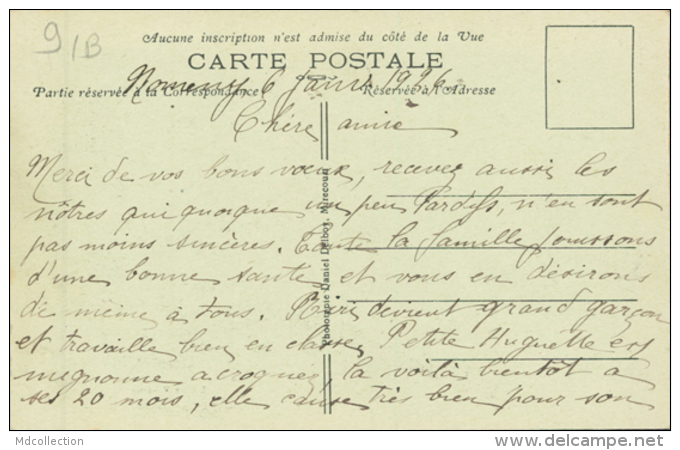 9/1B
Aucune inscription n'est admise du côté de la Vue
CARTE POSTALE
Nomeny 6 Janv 1926
Partie réservée à la Correspondance
Réservée à l'Adresse
Chère amie
Merci de vos bons vœux, recevez aussi les
nôtres qui quoique un peu tardifs, n'en sont
pas moins sincères. Toute la famille jouissons
d'une bonne santé et vous en désirons
de même à tous. devient grand garçon
et travaille bien en classe, Petite Huguette est
mignonne a croquer, la voilà bientôt a
ses 20 mois, elle cause très bien pour son
Phototypie Daniel Delboy, Mirecourt
Mdcollection
www.delcampe.net